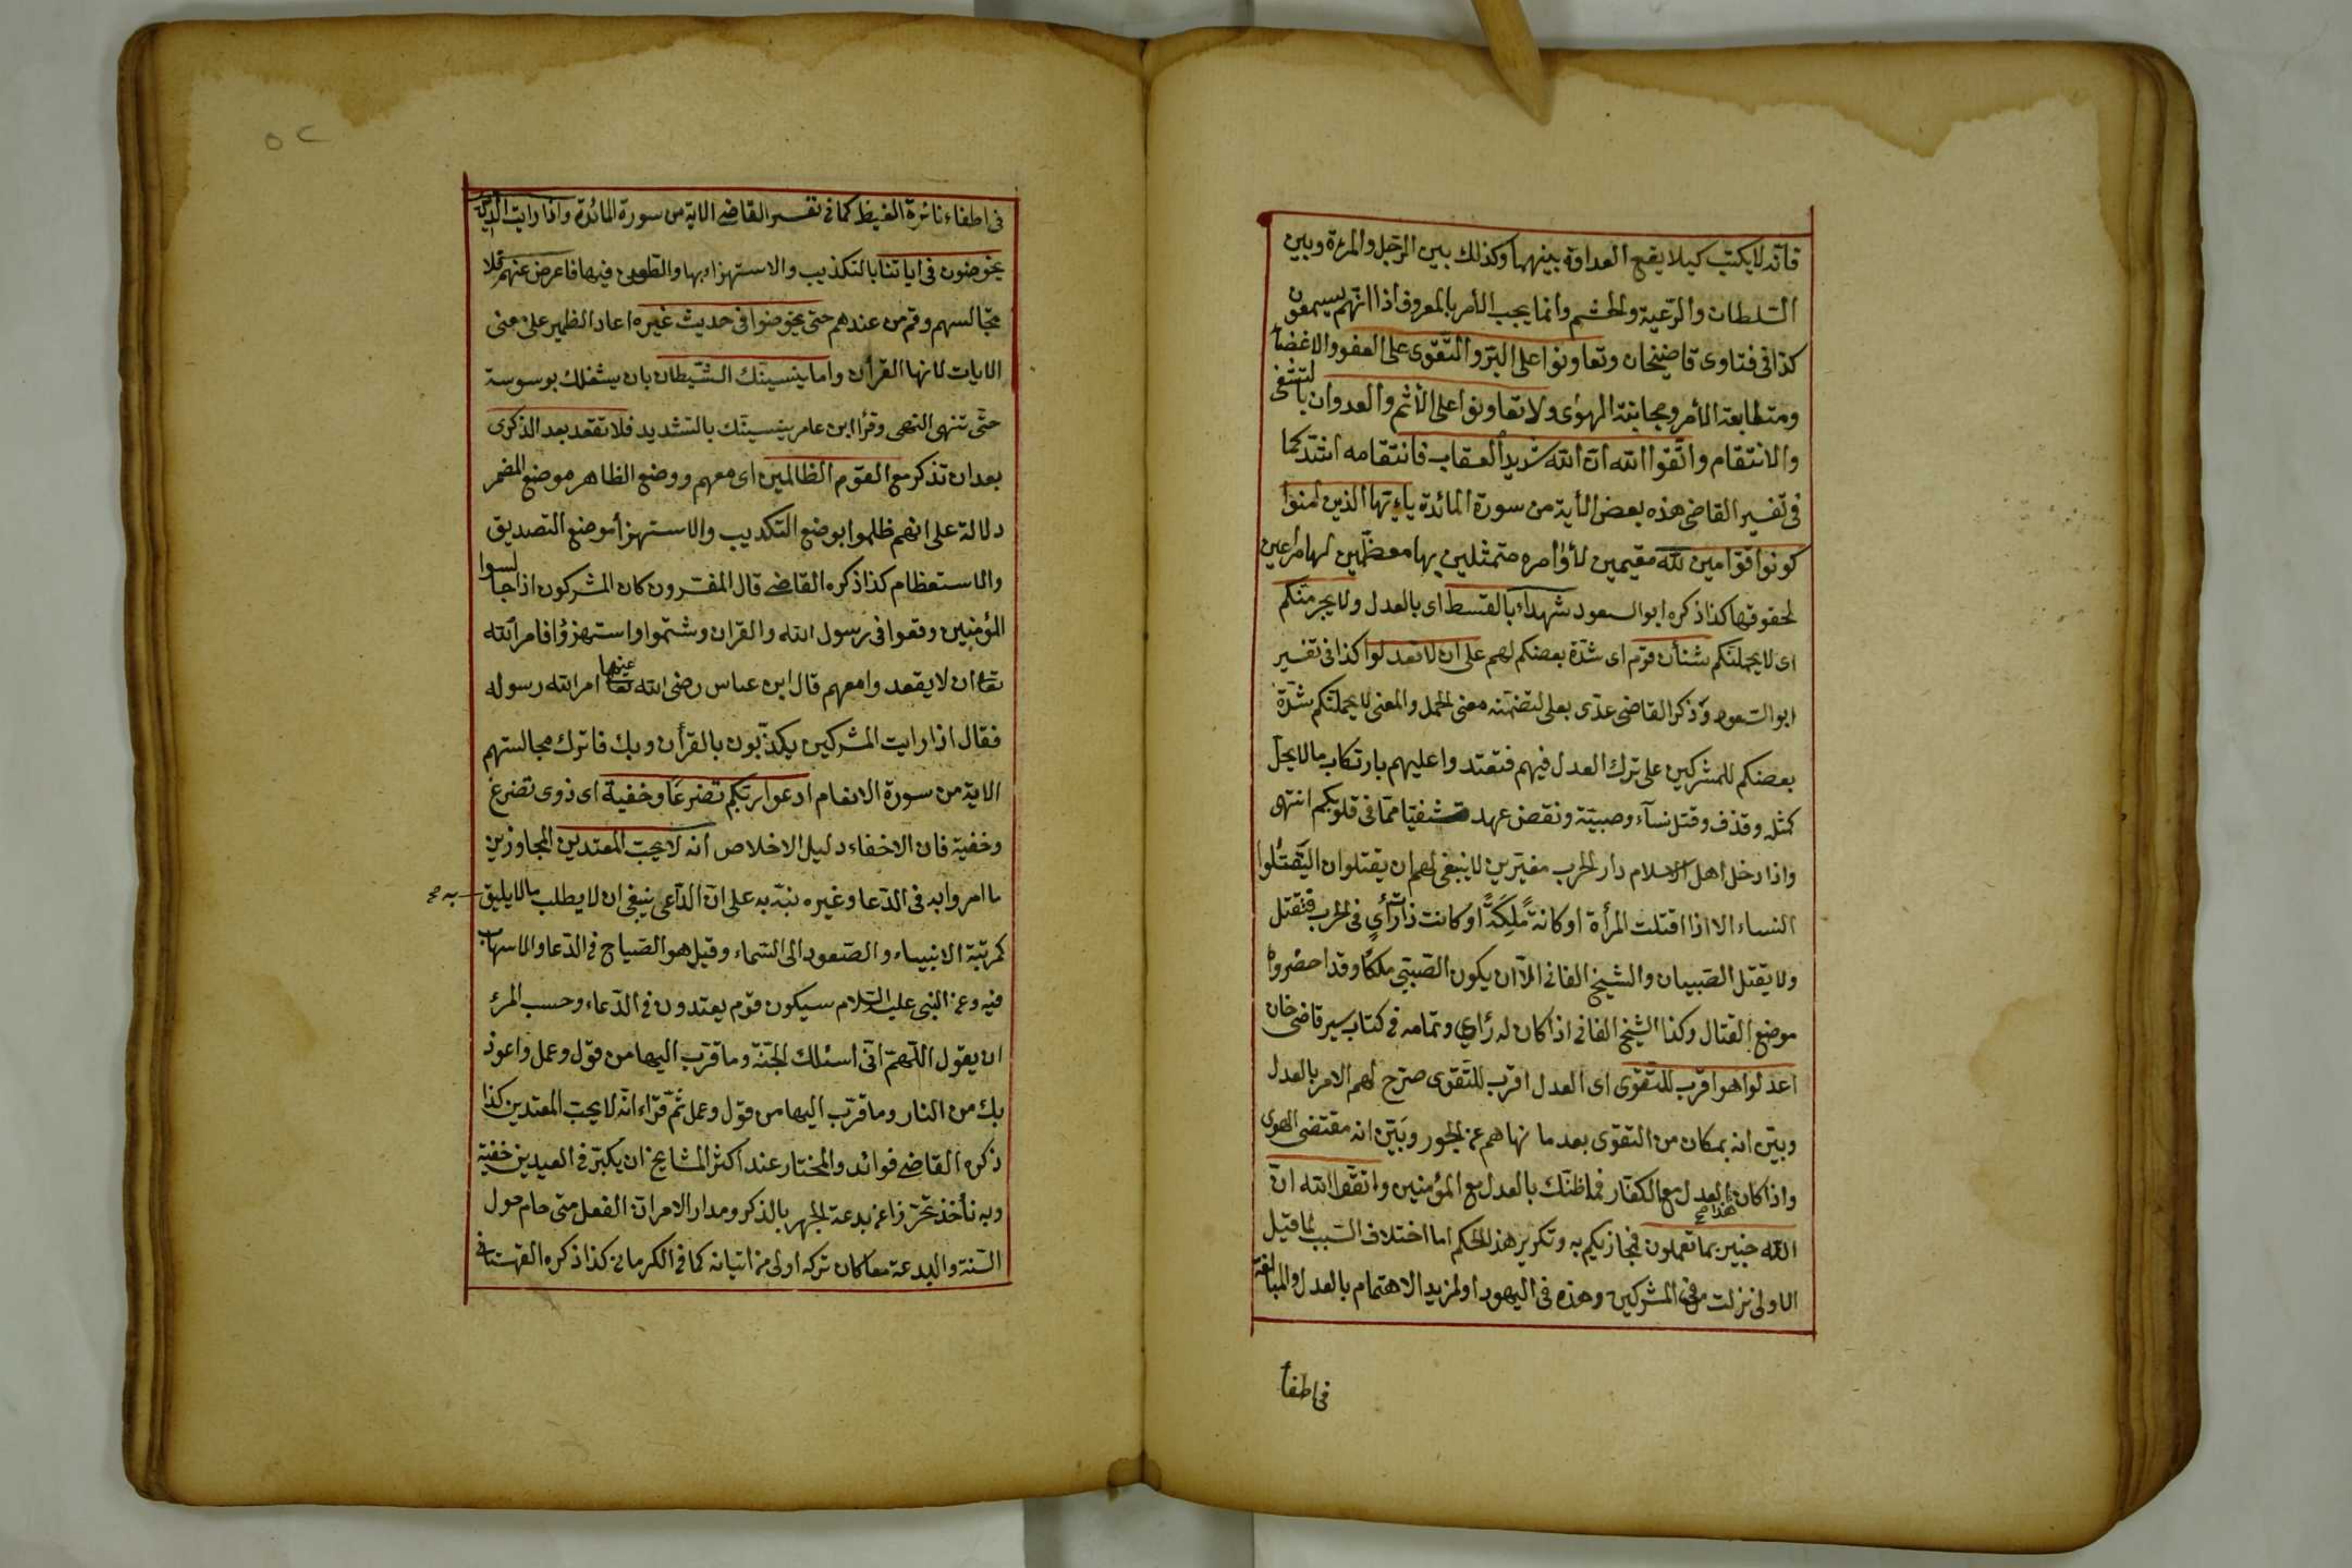 فانه لا يكتب كيلا يقع العداوة بينهما وكذلك بين الرّجل والمرءة وبين
السّلطان والرّعية والحشم وانما يجب الأمر بالمعروف اذا انّهم يسمعون
كذا فى فتاوى قاضيخان وتعاونوا على البرّ والتّقوى على العفو والاغضاء
ومتطابعة الأمر ومجانبة الهوى ولا تعاونوا على الأثم والعدوان بالتشفى
والانتقام واتّقوا الله انّ الله شديد العقاب فانتقامه اشدّ كما
فى تفسير القاضى هذه بعض الأية من سورة المائدة ياءيّها الذين امنوا
كونوا قوّامين لله مقيمين لأوامره متمثلين بها معظّمين لها مراعين
لحقوقها كذا ذكره ابو السعود شهداء بالقسط اى بالعدل ولا يجرمنّكم
اى لا يحملنّكم شنأن قوم اى شدّة بعضكم لهم على ان لا تعدلوا كذا فى تفسير
ابو السّعود وذكر القاضى عدّى بعلى لتضمّنه معنى الحمل والمعنى لا يحملنّكم شدّة
بعضكم للمشركين على ترك العدل فيهم فتعتدوا عليهم بارتكاب ما لا يحلّ
كمثله وقذف وقتل نسآء وصبيّة ونقض عهد تشفيّا ممّا فى قلوبكم انتهى
واذا دخل اهل الاسلام دار الحرب مغيرين لا ينبغى لهم ان يقتلوا ان اليقتلوا
النساء الا اذا اقتلت المرأة او كانة مَلِكَةً او كانت ذات رأىٍ فى الحرب فتقتل
ولا يقتل الصّبيان والشيخ الفانى الاّ ان يكون الصّبىّ ملكًا وقد احضروه
موضع القتال وكذا الشيخ الفانى اذا كان له رأي وتمامه فى كتاب سير قاضى خان
اعدلوا هو اقرب للتّقوى اى العدل اقرب للتّقوى صرّح لهم الامر بالعدل
وبيّن انه بمكان من التقوى بعد ما نهاهم عن الجور وبَيّن انه مقتضى الهوى
واذا كان العدل مع الكفّار فما ظنّك بالعدل مع المؤمنين واتقوا الله انّ
الله خبير بما تعملون فيجازيكم به وتكرير هذا الحكم اما اختلاف السّبب لما قيل
الاولى نزلت فى المشركين وهذه فى اليهود او لمزيد الاهتمام بالعدل والمبالغة
فى اطفا
٥٢
فى اطفاء نائرة الغيظ كما فى تفسير القاضى الاية من سورة المائدة واذا رايت الّذين
يخوضون فى اياتنا بالتكذيب والاستهزاء بها والطعن فيها فاعرض عنهم فلا
تجالسهم وقم من عندهم حتى يخوضوا فى حديث غيره اعاد الظمير على معنى
الايات لانها القرأن واما ينسينّك الشّيطان بان يشغلك بوسوسة
حتّى تنهى النهى وقرأ ابن عامر ينسينّك بالتشديد فلا تقعد بعد الذكرى
بعد ان تذكر مع القوم الظالمين اى معهم ووضع الظاهر موضع المضمر
دلالة على انهم ظلموا بوضع التكذيب والاستهزاء موضع التصديق
والاستعظام كذا ذكره القاضى قال المفسّرون كان المشركون اذا جالسوا
المؤمنين وقعوا فى رسول الله والقران وشتموا واستهزؤا فامر الله
تعا ان لا يقعدوا معهم قال ابن عباس رضى الله تعا عنهما امر الله رسوله
فقال اذا رايت المشركين يكذّبون بالقرأن وبك فاترك مجالستهم
الاية من سورة الانعام ادعوا ربّكم تضرعًا وخفية اى ذوى تضرع
وخفية فان الاخفاء دليل الاخلاص انه لا يحبّ المعتدين المجاوزين
ما امروا به فى الدّعا وغيره نبّه به على انّ الدّاعى ينبغى ان لا يطلب ما لا يليق به صح
كمرتبة الانبياء والصّعود الى السّماء وقيل هو الصّياح فى الدّعا والاسهاب
فيه وعن النبى عليه السّلام سيكون قوم يعتدون فى الدّعاء وحسب المرء
ان يقول اللّهمّ انّى اسئلك الجنّة وما قرّب اليها من قول وعمل واعوذ
بك من النار وما قرّب اليها من قول وعمل ثمّ قرّاء انّه لا يحبّ المعتدين كذا
ذكره القاضى فوائد والمختار عند اكثر المشايخ ان يكبّر فى العيدين خفية
وبه نأخذ تحرّزا عن بدعة الجهر بالذكر ومدار الامر ان الفعل متى حام حول
السّنة والبدعة معا كان تركه اولى من اتيانه كما فى الكرمانى كذا ذكره القهستانى